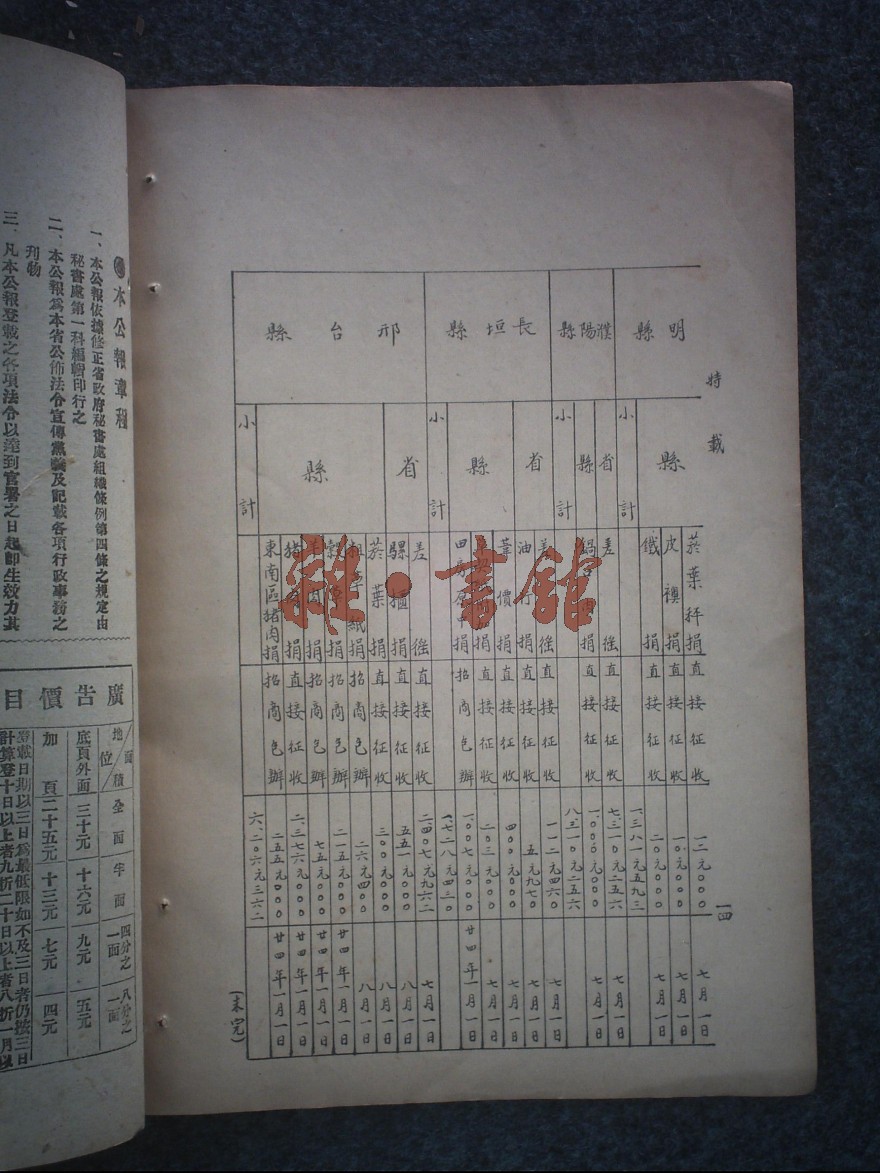 特載
一四
明縣
縣
菸葉秤捐
一二元〇〇〇
七月一日
皮襖捐
直接征收
一〇元〇〇〇
七月一日
鐵捐
直接征收
二〇元〇〇〇
七月一日
小計
一、三八一元五九三
濮陽縣
省
差徭
直接征收
七三一〇元二五六
七月一日
縣
捐
直接征收
一、〇〇〇元〇〇〇
七月一日
小計
八、三一〇元二五六
長垣縣
省
差徭
直接征收
一一二元四六〇
七月一日
油
直接征收
五元九七〇
七月一日
縣
葦價捐
直接征收
四〇〇元〇〇〇
七月一日
捐
直接征收
二〇三元〇〇〇
七月一日
捐
招商包辦
一、〇〇七元〇〇〇
廿四年一月一日
小計
一、七二八元四三〇
邢台縣
省
差徭
直接征收
二、四〇七元九六二
七月一日
騾櫃捐
直接征收
五五一元〇〇〇
八月一日
縣
菸葉捐
直接征收
三〇〇元〇〇〇
八月一日
紙捐
招商包辦
二六元四〇〇
八月一日
捐
招商包辦
二一五元〇〇〇
廿四年一月一日
肉捐
招商包辦
七五元〇〇〇
廿四年一月一日
猪捐
直接征收
二、三七六元〇〇〇
廿四年一月一日
東南區猪肉捐
招商包辦
二五五元〇〇〇
廿四年一月一日
小計
六、二〇六元三六二
(未完)
雜·書館
本公報章程
一、本公報依據修正省政府秘書處組織條例第四條之規定由
秘書處第一科編輯印行之
二、本公報為本省公佈法令宣傳黨義及記載各項行政事務之
刊物
三、凡本公報登載之各項法令以達到官署之日起即生效力其
廣告價目
地位/面積
全面
半面
四分之一面
八分之一面
底頁外面
三十元
十六元
九元
五元
加頁
二十五元
十三元
七元
四元
登載日期以三日為最低限如不及三日者仍按三日
計算登十日以上者九折二十日以上者八折一月以